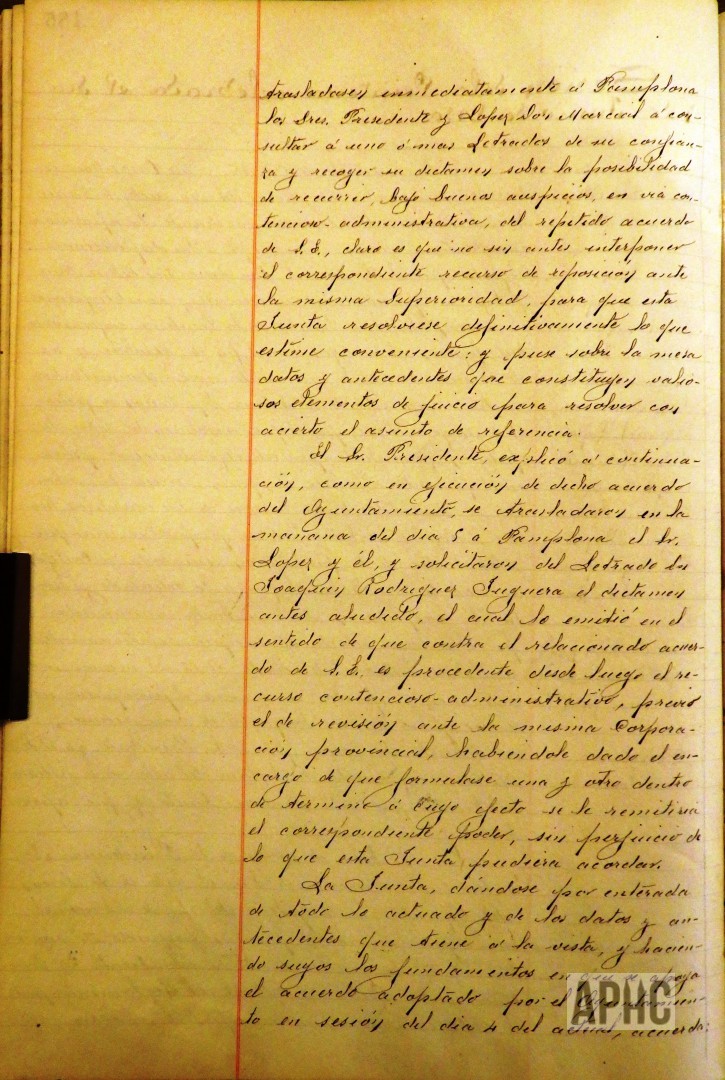 trasladasen inmediatamente á Pamplona
los Sres. Presidente y Lopez Don Marcial á con-
sultar á uno ó mas Letrados de su confian-
za y recoger su dictamen sobre la posibilidad
de recurrir, bajo buenos auspicios, en via con-
tencioso-administrativa, del repetido acuerdo
de S.E., claro es que no sin antes interponer
el correspondiente recurso de reposicion ante
la misma Superioridad, para que esta
Junta resolviese definitivamente lo que
estime conveniente: y puse sobre la mesa
datos y antecedentes que constituyen valio-
sos elementos de juicio para resolver con
acierto el asunto de referencia.
El Sr. Presidente, explicó á continua-
ción, como en ejecución de dicho acuerdo
del Ayuntamiento, se trasladaron en la
mañana del dia 5 á Pamplona el Sr.
Lopez y él, y solicitaron del Letrado
Joaquin Rodriguez Juguera el dictamen
antes aludido, el cual lo emitió en el
sentido de que contra el relacionado acuer-
do de S.E. es procedente desde luego el re-
curso contencioso-administrativo, previo
el de revisión ante la misma Corpora-
ción provincial, habiéndole dado el en-
cargo de que formulase uno y otro dentro
de termino á cuyo efecto se le remitiria
el correspondiente poder, sin perjuicio de
lo que esta Junta pudiera acordar.
La Junta, dándose por enterada
de todo lo actuado y de los datos y an-
tecedentes que tiene á la vista, y hacien-
do suyos los fundamentos en que apoya
el acuerdo adoptado por el Ayuntamien-
to en sesión del dia 4 del actual, acuerda:
APHC